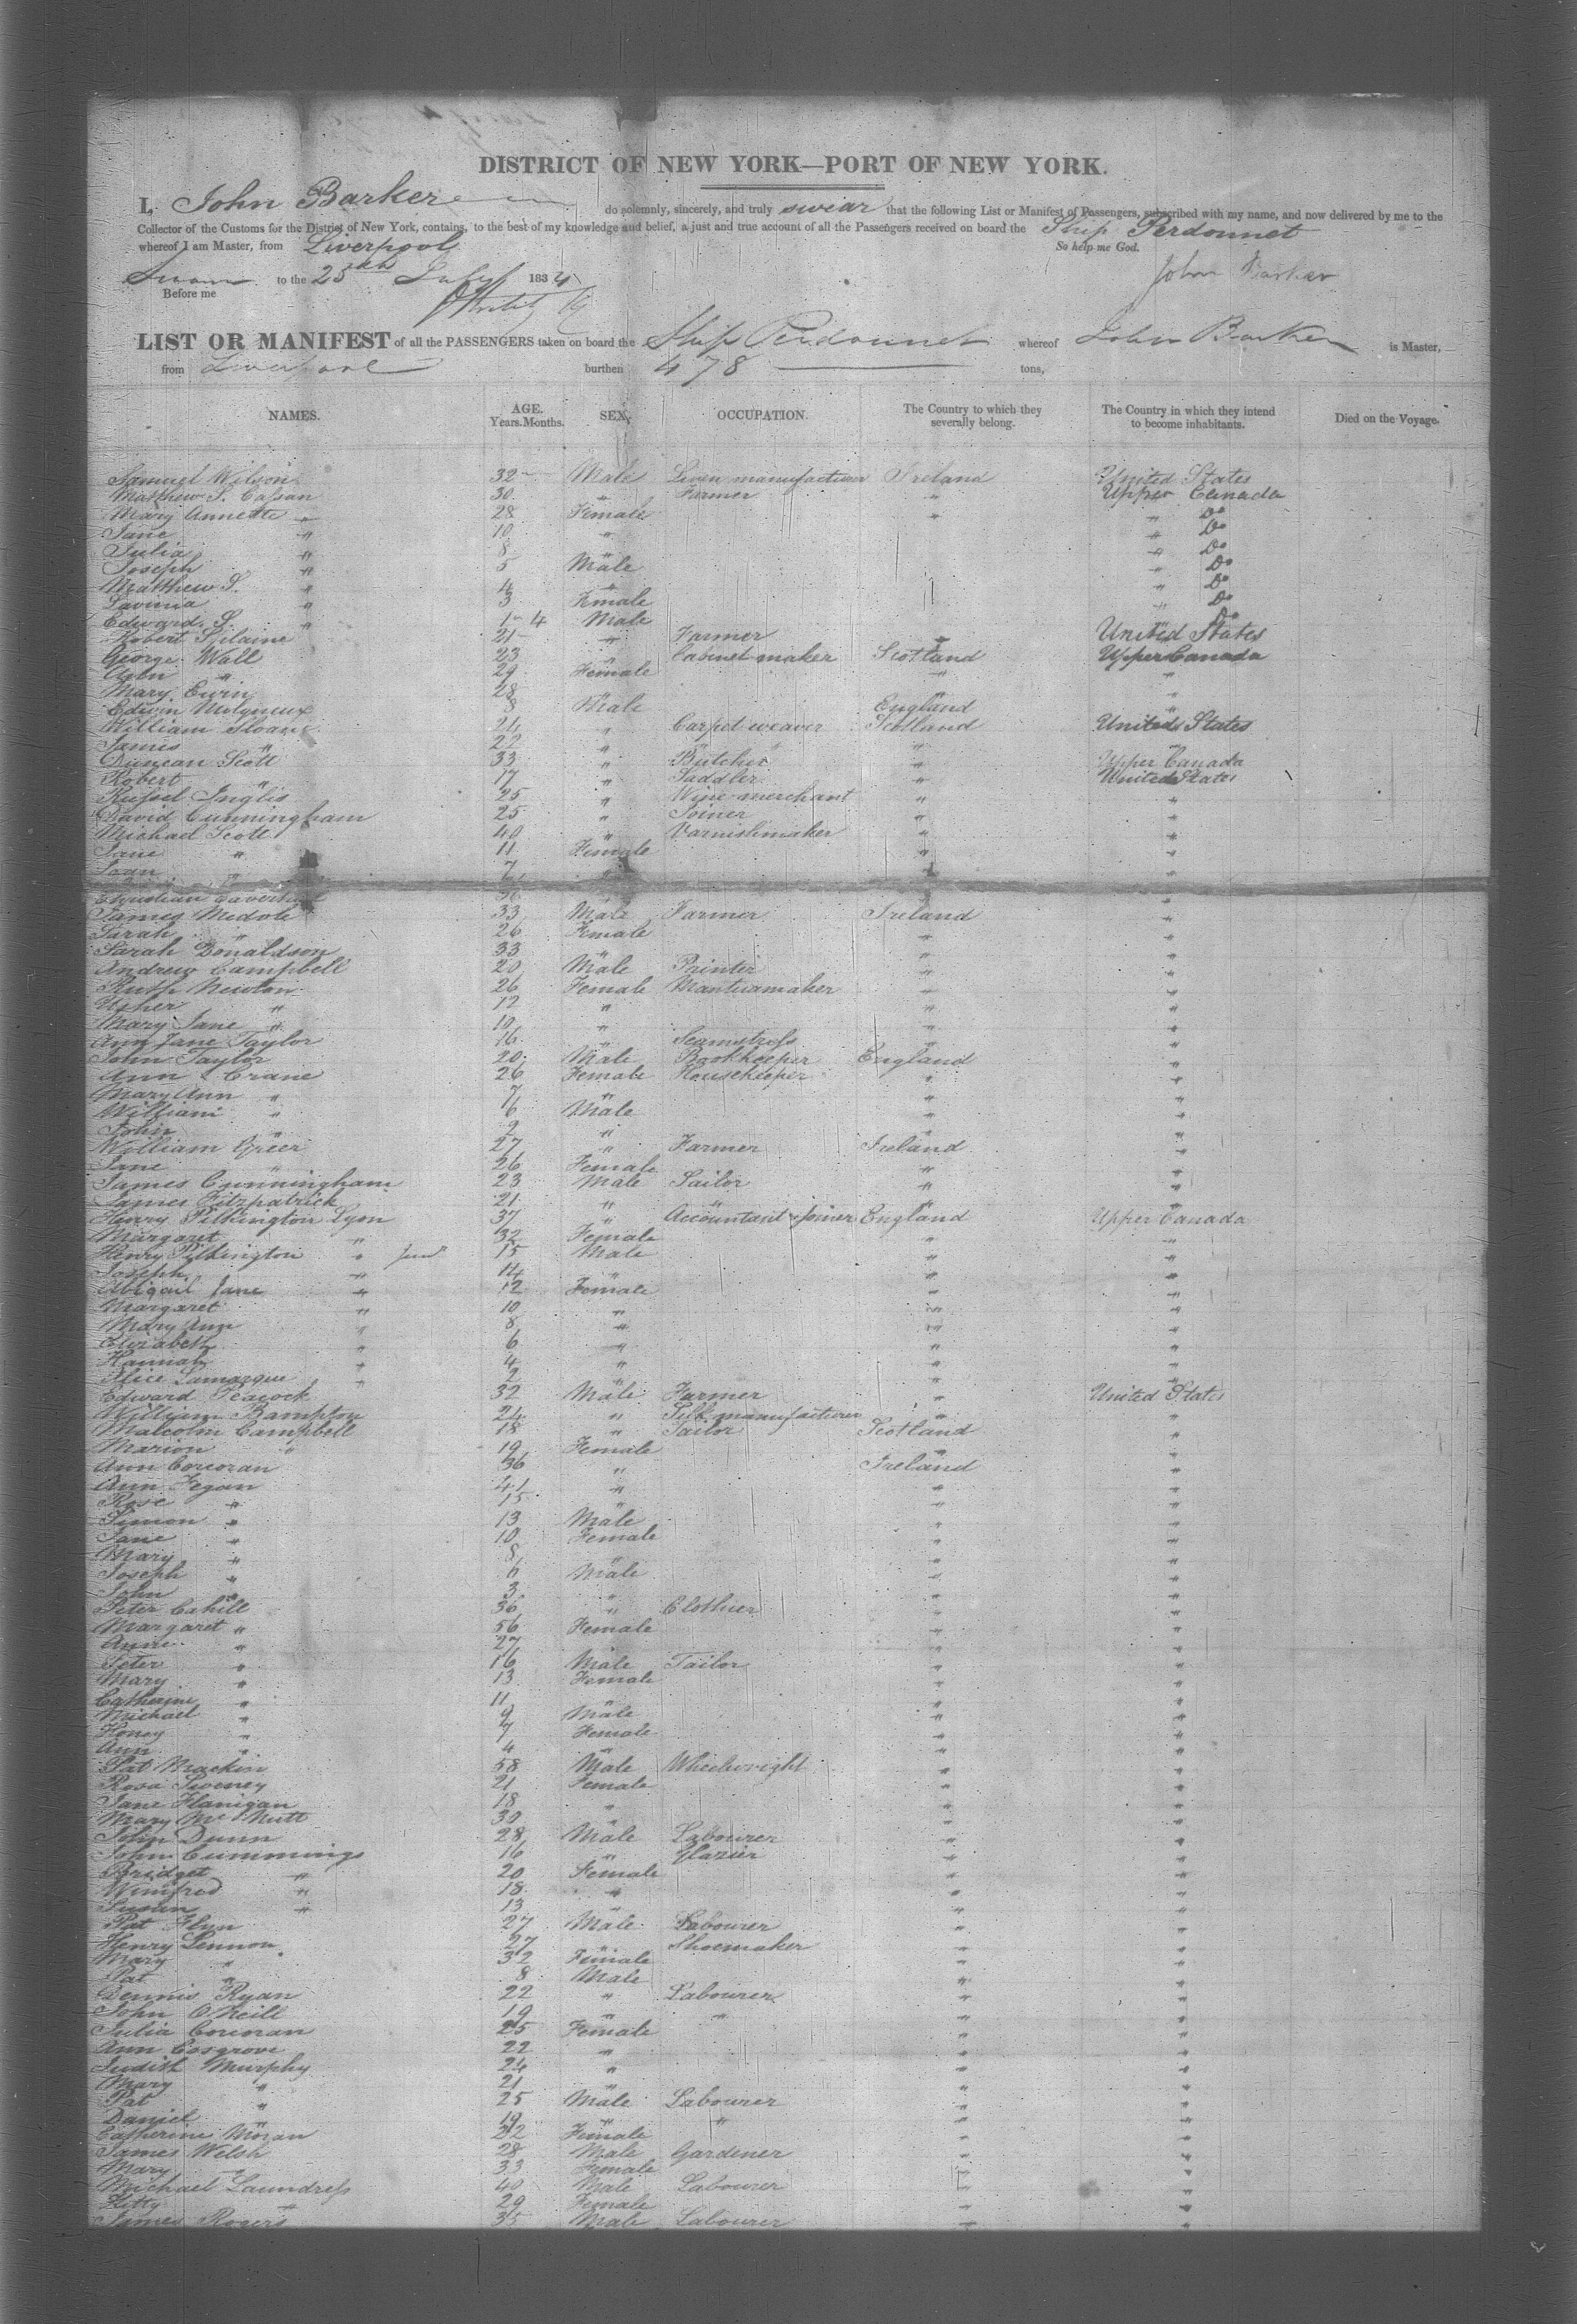 DISTRICT OF NEW YORK—PORT OF NEW YORK.
I, John Barker do solemnly, sincerely, and truly swear that the following List or Manifest of Passengers, subscribed with my name, and now delivered by me to the
Collector of the Customs for the District of New York, contains, to the best of my knowledge and belief, a just and true account of all the Passengers received on board the Ship Perdonnet
whereof I am Master, from Liverpool So help me God.
Sworn to the 25th July 1834 John Barker
Before me
LIST OR MANIFEST of all the PASSENGERS taken on board the Ship Perdonnet whereof John Barker is Master,
from Liverpool burthen 478 tons,
NAMES. AGE. Years. Months. SEX. OCCUPATION. The Country to which they severally belong. The Country in which they intend to become inhabitants. Died on the Voyage.
Samuel Wilson 32 Male Linen manufacturer Ireland United States
Matthew S. Cassan 30 " Farmer " Upper Canada
Mary Annette " 28 Female " " Do
Jane " 10 " " Do
Julia " 8 " Do
Joseph " 5 Male " Do
Matthew S. " 4 " " Do
Lavinia " 3 Female " Do
Edward S. " 1 4 Male Do
Robert 21 " Farmer " United States
George Wall 23 " Cabinet maker Scotland Upper Canada
Ann " 29 Female " "
Mary Ewin 28 " "
Edwin Molyneux 8 Male England "
William Sloane 24 " Carpet weaver Scotland United States
James " 22 " " " "
Duncan Scott 33 " Butcher " Upper Canada
Robert " 17 " Saddler " United States
Russel Inglis 25 " Wine merchant " "
David Cunningham 25 " Joiner " "
Michael Scott 40 " Varnishmaker " "
Jane " 11 Female " "
Joan " 7 " "
Christian 36 "
James Medole 33 Male Farmer Ireland "
Sarah " 26 Female " "
Sarah Donaldson 33 " " "
Andrew Campbell 20 Male Painter " "
Ruth Newton 26 Female Mantuamaker " "
Usher " 12 " " "
Mary Jane " 10 " " "
Ann Jane Taylor 16 " Seamstress " "
John Taylor 20 Male Bookkeeper England "
Ann Crane 26 Female Housekeeper " "
Mary Ann " 7 " " "
William " 6 Male " "
John " 2 " " "
William Greer 27 " Farmer Ireland "
Jane " 26 Female " "
James Cunningham 23 Male Sailor " "
James Fitzpatrick 21 " " " "
Henry Pilkington Lyon 37 " Accountant & Joiner England Upper Canada
Margaret " 32 Female " "
Henry Pilkington " Junr 15 Male " "
Joseph " 14 " " "
Abigail Jane " 12 Female " "
Margaret " 10 " " "
Mary Ann " 8 " " "
Elizabeth " 6 " " "
Hannah " 4 " " "
Alice Lamarque " 2 " " "
Edward Peacock 32 Male Farmer " United States
William Bampton 24 " Silk manufacturer " "
Malcolm Campbell 18 " Tailor Scotland "
Marion " 19 Female " "
Ann Corcoran 36 " Ireland "
Ann Fegan 41 " " "
Rose " 15 " " "
Simon " 13 Male " "
Jane " 10 Female " "
Mary " 8 " " "
Joseph " 6 Male " "
John " 3 " " "
Peter Cahill 36 " Clothier " "
Margaret " 56 Female " "
Anne " 27 " "
Peter " 16 Male Tailor " "
Mary " 13 Female " "
Catherine " 11 " " "
Michael " 9 Male " "
Honey " 7 Female " "
Ann " 4 " " "
Pat Mackin 58 Male Wheelwright " "
Rosa Sweney 21 Female " "
Jane Flanigan 18 " " "
Mary McNutt 30 " " "
John Dunn 28 Male Labourer " "
John Cummings 16 " Glazier " "
Bridget " 20 Female " "
Winifred " 18 " " "
13 " " "
Pat Flyn 27 Male Labourer " "
Henry Lennon 27 " Shoemaker " "
Mary " 32 Female " "
Pat " 8 Male " "
Dennis Ryan 22 " Labourer " "
John O'Neill 19 " " " "
Julia Corcoran 25 Female " "
Ann Cosgrove 22 " " "
Judith Murphy 24 " " "
Mary " 21 " " "
Pat " 25 Male Labourer " "
Daniel " 19 " " " "
Catherine Moran 22 Female " "
James Welsh 28 Male Gardener " "
Mary " 33 Female " "
Michael Laundress 40 Male Labourer " "
Kitty " 29 Female " "
James Rogers 35 Male Labourer " "